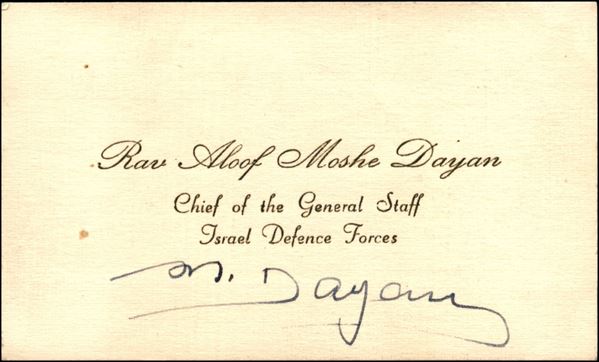 Rav Aloof Moshe Dayan
Chief of the General Staff
Israel Defence Forces
M. Dayan